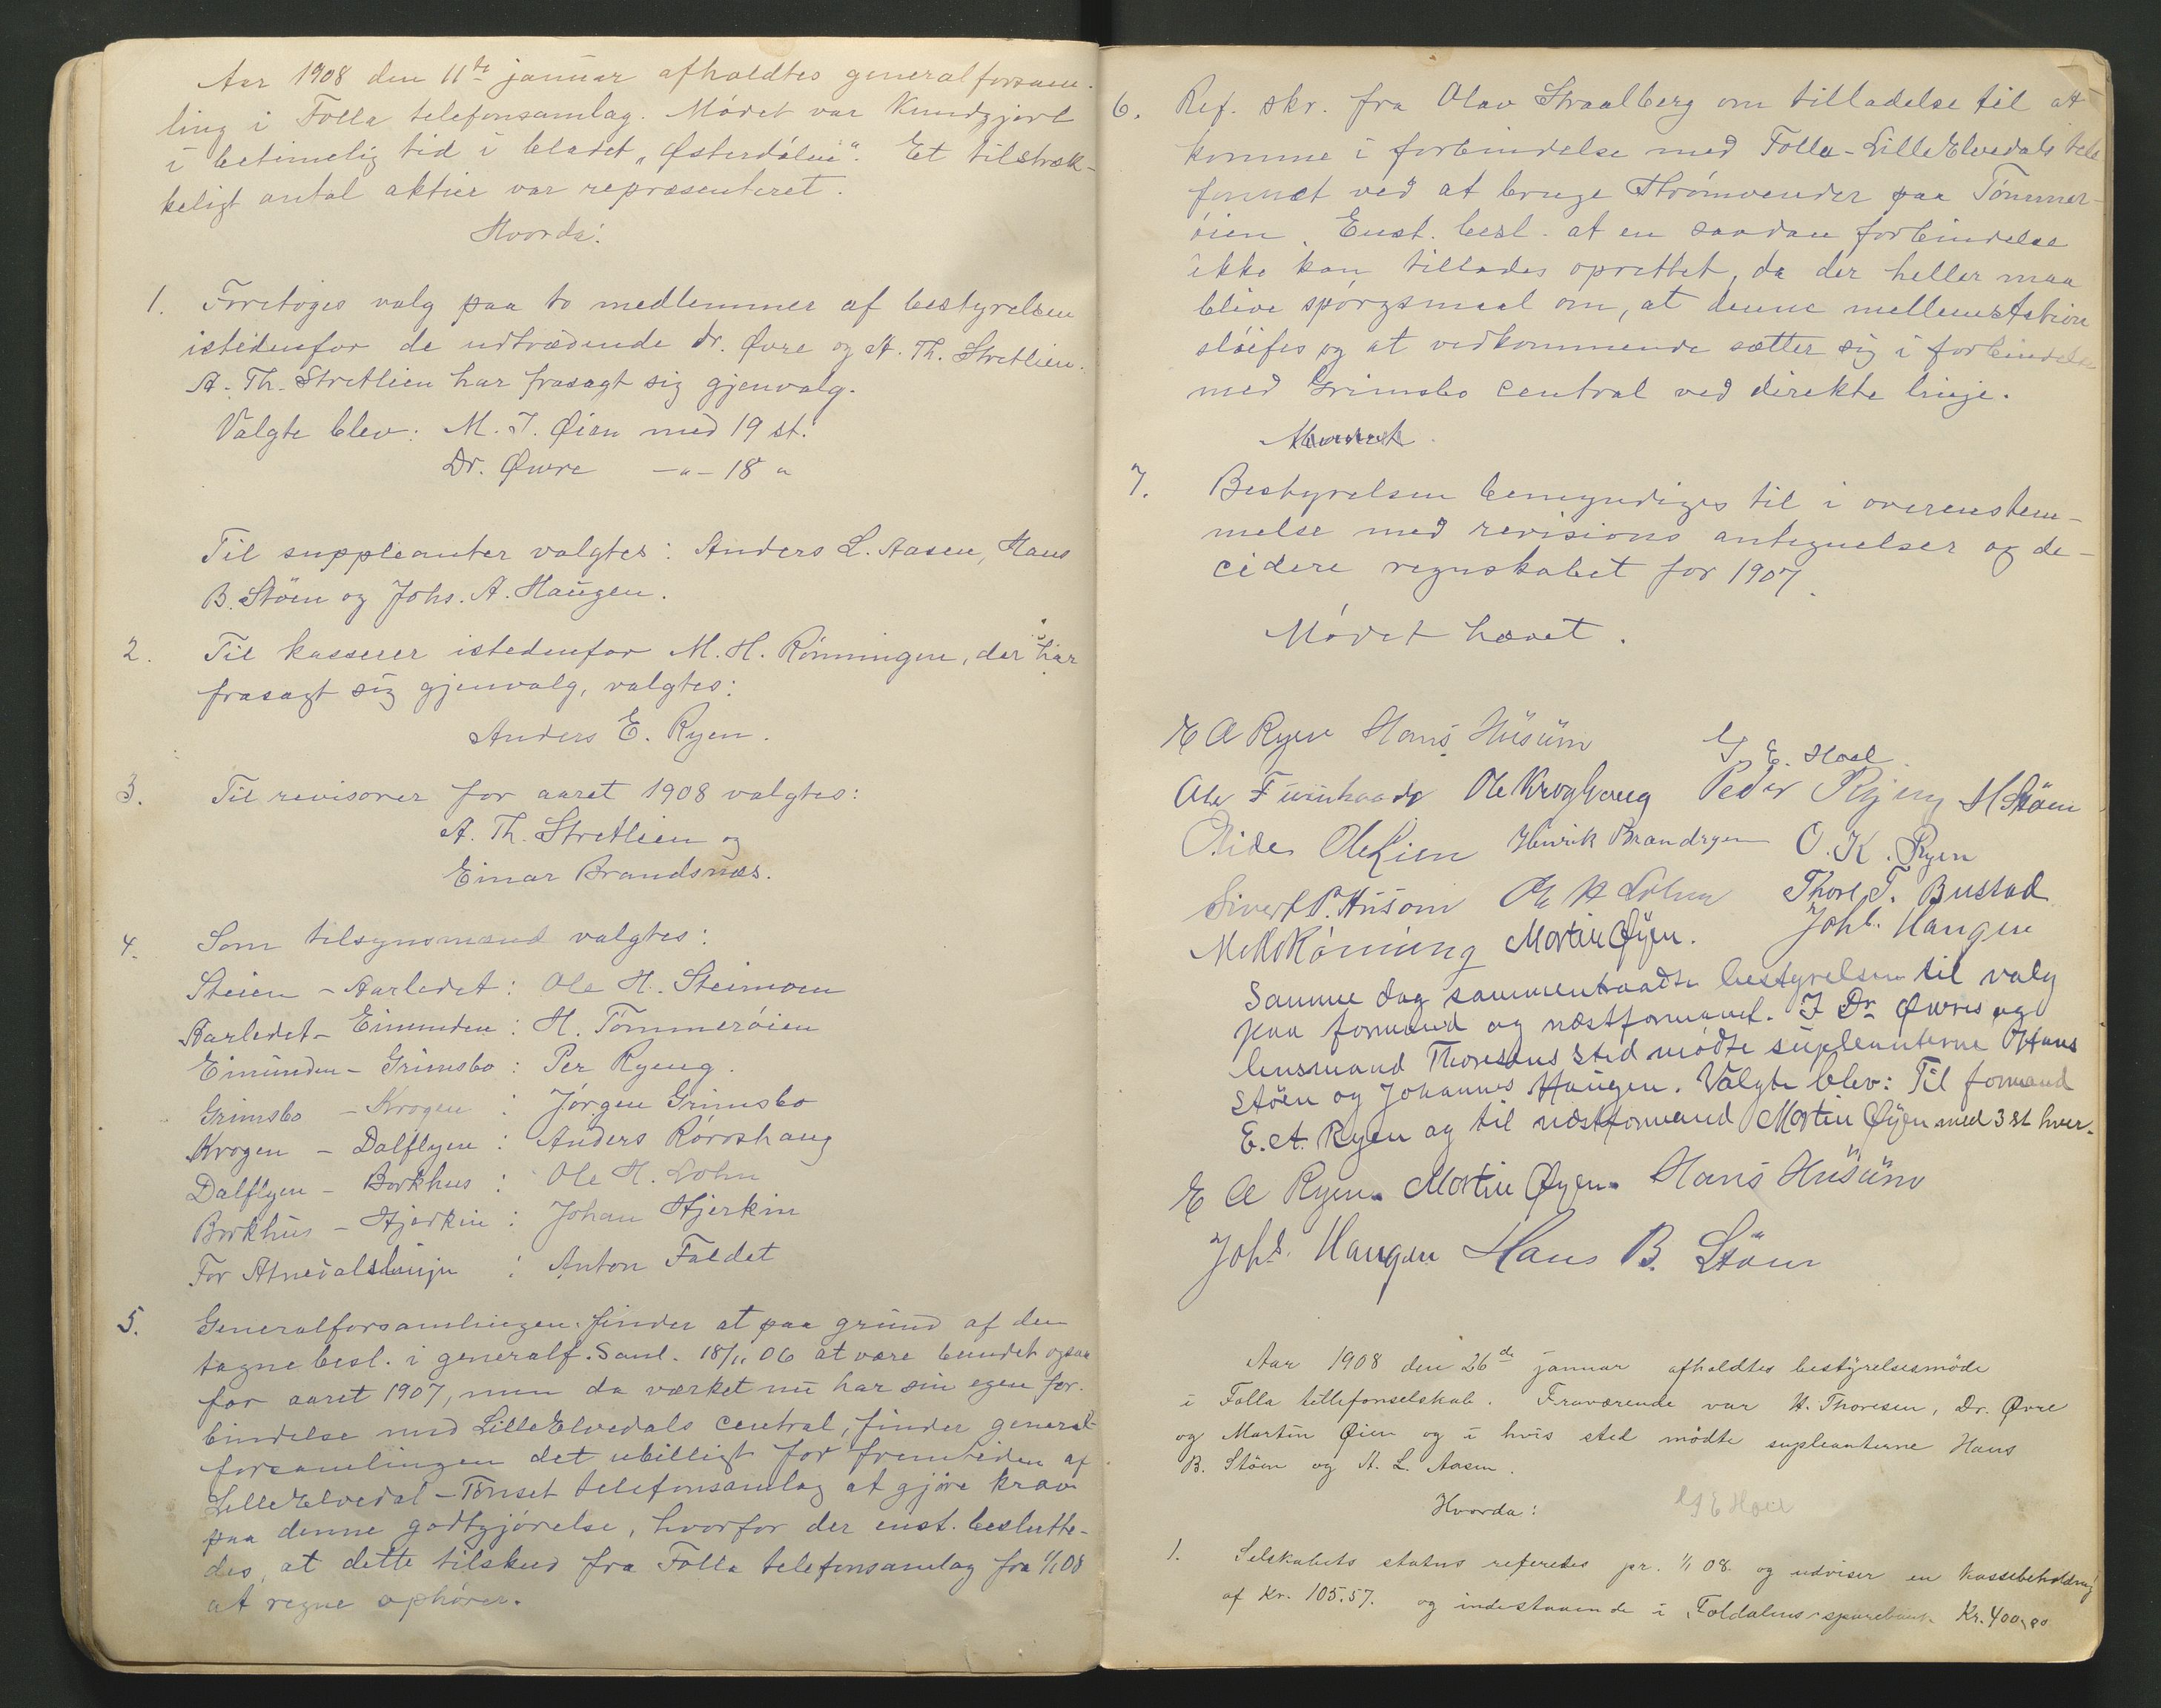 Aar 1908 den 11te januar afholdtes generalforsam-
ling i Folla telefonsamlag. Mödet var kundgjort
i betimelig tid i bladet „Østerdölen“. Et tilstræk-
keligt antal aktier var repræsenteret.
Hvorda:
1. Foretoges valg paa to medlemmer af bestyrelsen
istedenfor de udtrædende dr. Øvre og A. Th. Stretlien.
A. Th. Stretlien har frasagt sig gjenvalg.
Valgte blev: M. J. Øien med 19 st.
Dr. Øvre —„— 18 „
Til suppleanter valgtes: Anders L. Aasen, Hans
B. Stöen og Johs. A. Haugen.
2. Til kasserer istedenfor M. H. Rönningen, der har
frasagt sig gjenvalg, valgtes:
Anders E. Ryen.
3. Til revisorer for aaret 1908 valgtes:
A. Th. Stretlien og
Einar Brandsnæs.
4. Som tilsynsmænd valgtes:
Steien – Aarledet: Ole H. Steimoen
Aarledet – Einunden: H. Tömmeröien
Einunden – Grimsbo: Per Ryeng.
Grimsbo – Krogen: Jörgen Grimsbo
Krogen – Dalflyen: Anders Röroshaug
Dalflyen – Borkhus: Ole H. Lohn
Borkhus – Hjerkin: Johan Hjerkin
For Atnedalslinjen: Anton Faldet
5. Generalforsamlingen finder at paa grund af den
tagne besl. i generalf. Saml. 18/11 06 at være bundet ogsaa
for aaret 1907, men da værket nu har sin egen for-
bindelse med LilleElvedals central, finder general-
forsamlingen det ubilligt for fremtiden af
LilleElvedal – Tönset telefonsamlag at gjöre krav
paa denne godtgjörelse, hvorfor der enst. beslutte-
des, at dette tilskud fra Folla telefonsamlag fra 1/1 08
at regne ophörer.
6. Ref. skr. fra Olav Straalberg om tilladelse til at
komme i forbindelse med Folla-LilleElvedals tele
fonnet ved at bruge Strömvender paa Tömmer-
öien. Enst. besl. at en saadan forbindelse
ikke kan tillades oprettet, da der heller maa
blive spörgsmaal om, at denne mellemstation
slöifes og at vedkommende sætter sig i forbindelse
med Grimsbo central ved direkte linje.
7. Bestyrelsen bemyndiges til i overenstem-
melse med revisions antegnelser og de-
cidere regnskabet for 1907.
Mödet hævet.
E A Ryen Hans Husum
E. Hoel
Ole Ole Kroghaug Peder Ryeng H Stöen
Ole Lien Henrik Brandryen O. K. Ryen
Sivert P. Husom Ole H Lohn Thore T. Bustad
M H Rönning Martin Øyen. Johs. Haugen
Samme dag sammentraadte bestyrelsen til valg
paa formand og næstformand. I Dr. Øvres og
lensmand Thoresens sted mödte supleanterne Hans
Stöen og Johannes Haugen. Valgte blev: Til formand
E. A. Ryen og til næstformand Martin Øyen med 3 st hver.
E A Ryen. Martin Øyen. Hans Husum
Johs. Haugen Hans B. Stöen
Aar 1908 den 26de januar afholdtes bestyrelsesmöde
i Folla tellefonselskab. Fraværende var H. Thoresen, Dr. Øvre
og Martin Øien og i hvis sted mödte supleanterne Hans
B. Stöen og A. L. Aasen.
Hvorda:
1. Selskabets status referedes pr. 1/1 08. og udviser en kassebeholdning
af kr. 105.57. og indestaaende i Foldalens sparebank Kr. 400,00